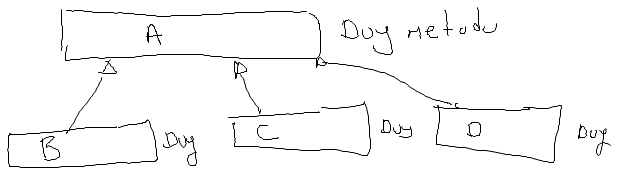 A Duy metodu
B Duy C Duy D Duy